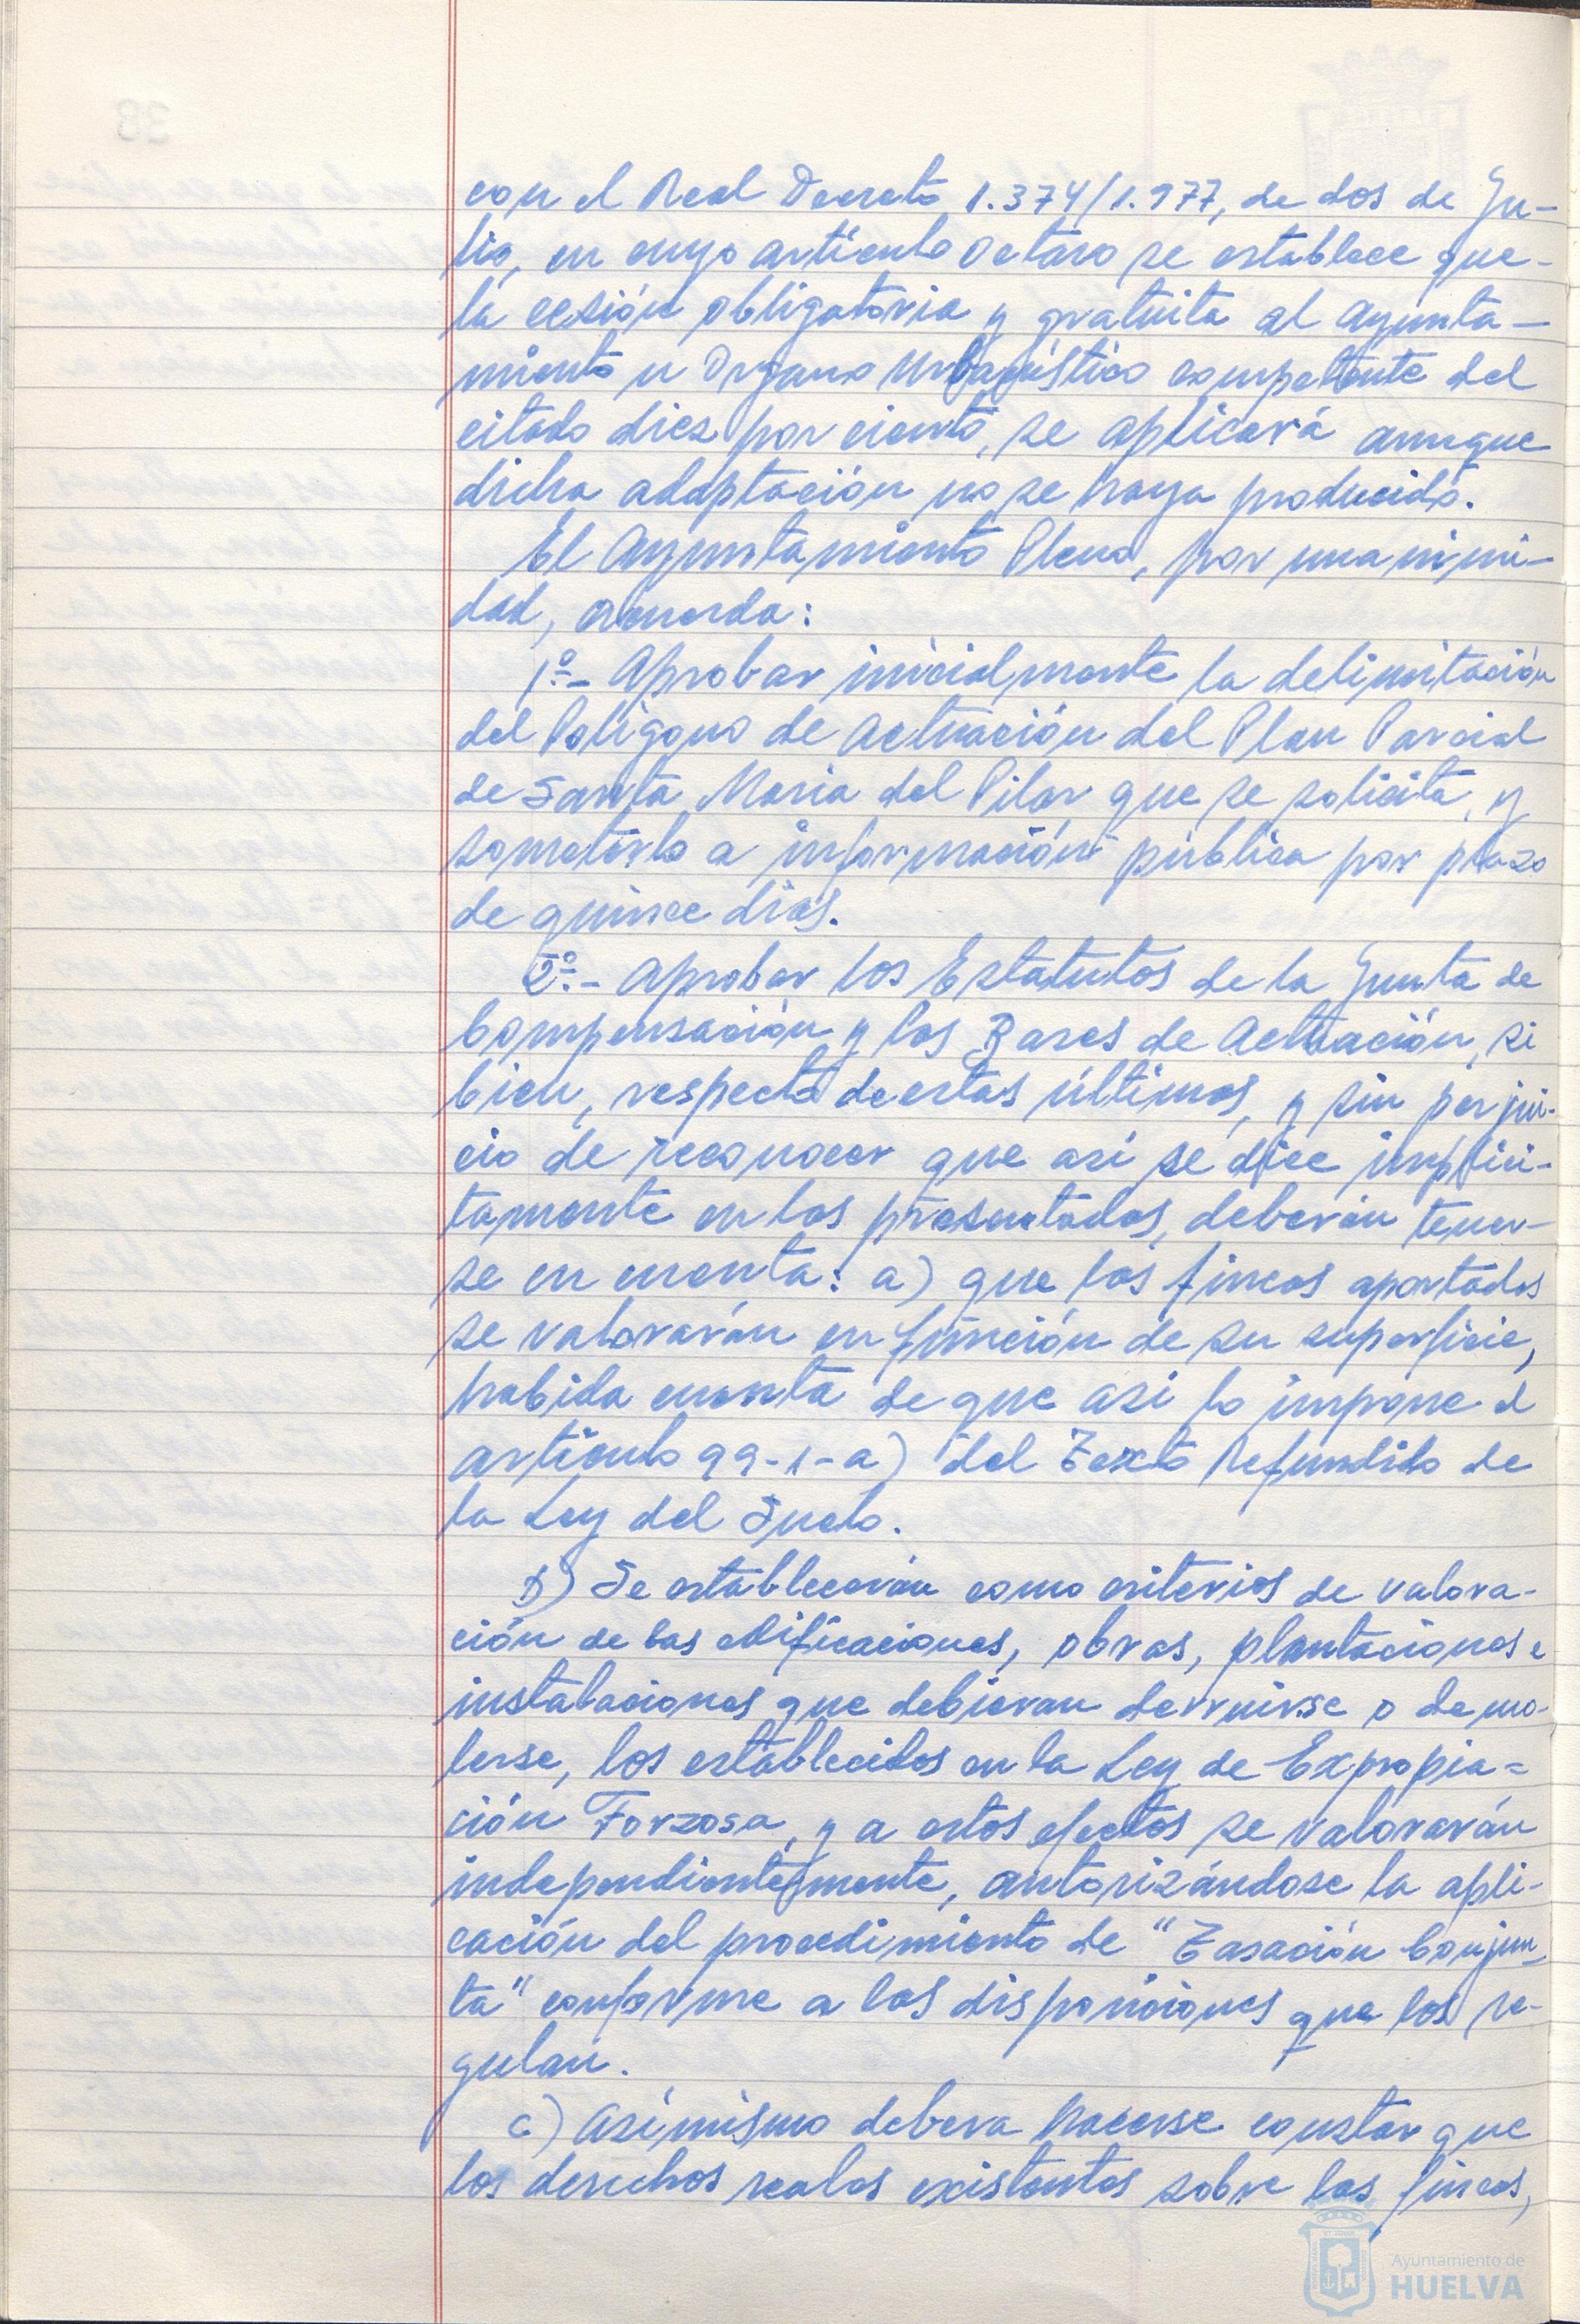 con el Real Decreto 1.374/1.977, de dos de Ju-
lio, en cuyo artículo octavo se establece que-
la cesión obligatoria y gratuita al Ayunta-
miento u Organo Urbanístico competente del
citado diez por ciento, se aplicará aunque
dicha adaptación no se haya producido.
El Ayuntamiento Pleno, por unanimi-
dad, acuerda:
1º.- Aprobar inicialmente la delimitación
del Polígono de Actuación del Plan Parcial
de Santa Maria del Pilar que se solicita, y
someterlo a información pública por plazo
de quince dias.
2º.- Aprobar los Estatutos de la Junta de
Compensación y las Bases de Actuación, si
bien, respecto de estas últimas, y sin perjui-
cio de reconocer que así se dice implici-
tamente en las presentadas, deberán tener-
se en cuenta: a) que las fincas aportadas
se valorarán en función de su superficie,
habida cuenta de que así lo impone el
artículo 99-1-a) del Texto Refundido de
la Ley del Suelo.
b) Se establecerán como criterios de valora-
ción de las edificaciones, obras, plantaciones e
instalaciones que debieran derruirse o demo-
lerse, los establecidos en la Ley de Expropia=
ción Forzosa, y a estos efectos se valorarán
independientemente, autorizándose la apli-
cación del procedimiento de "Tasación Conjun-
ta" conforme a las disposiciones que los re-
gulan.
c) Asímismo debera hacerse constar que
los derechos reales existentes sobre las fincas,
Ayuntamiento de
HUELVA
38